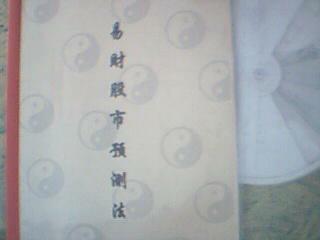 易財股市预测法